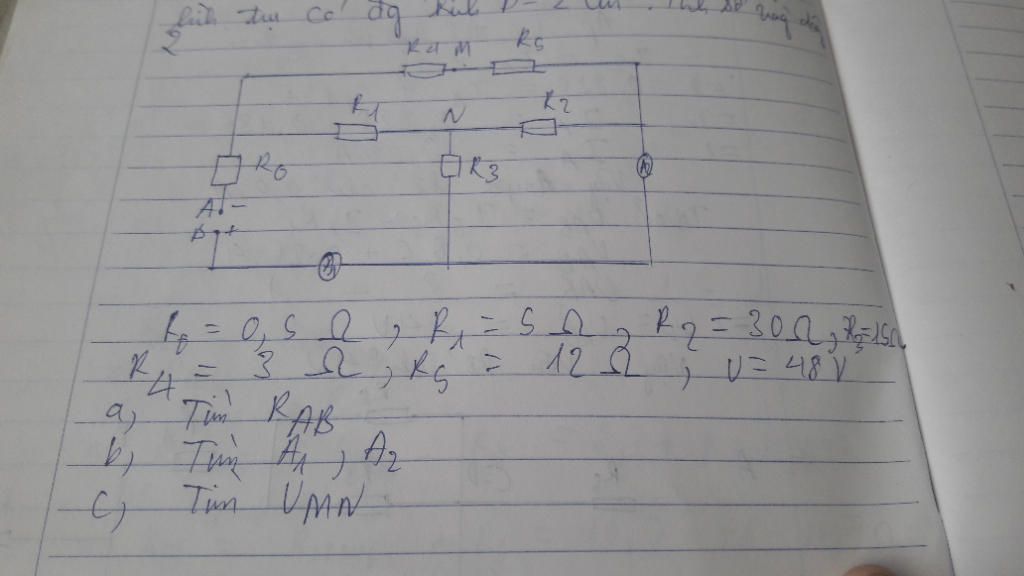 2
R4 M R5
R1 N R2
R0 R3
A -
B +
R0 = 0,5 Ω , R1 = 5 Ω , R2 = 30 Ω , R3 = 15Ω
R4 = 3 Ω , R5 = 12 Ω , U = 48 V
a, Tìm RAB
b, Tìm A1 , A2
c, Tìm UMN